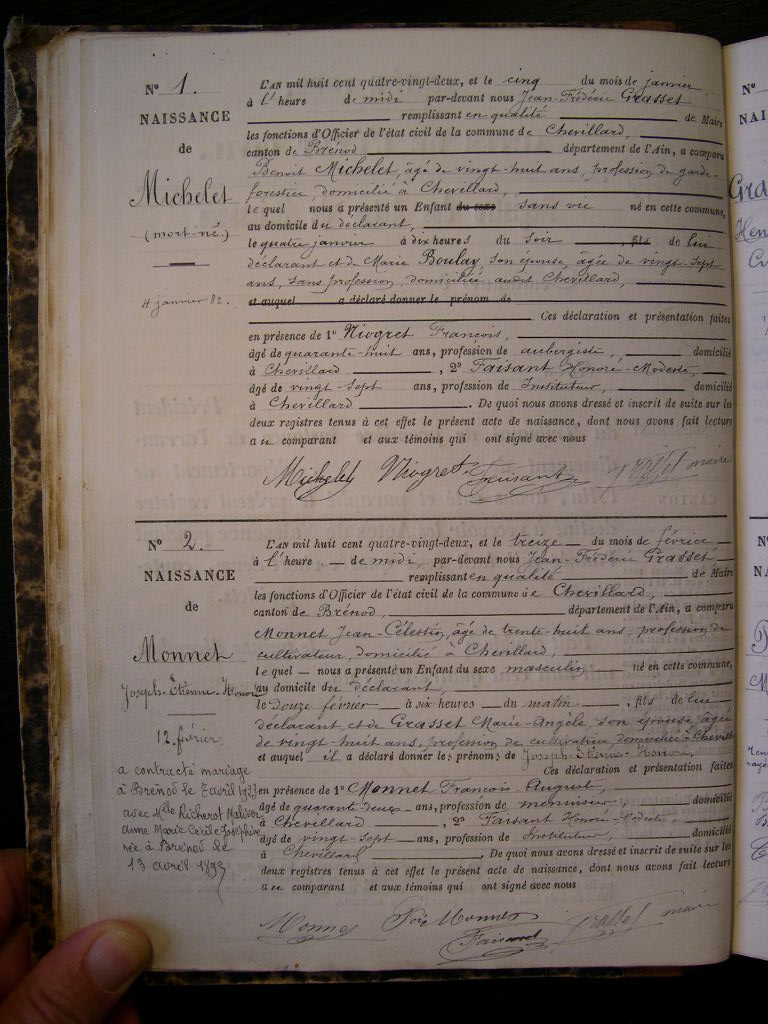 N° 1.
NAISSANCE
de
Michelet
(mort-né.)
4 janvier 82.
L'AN mil huit cent quatre-vingt-deux, et le cinq du mois de janvier
à l'heure de midi par-devant nous Jean-Frédéric Grasset
remplissant en qualité de Maire
les fonctions d'Officier de l'état civil de la commune de Chevillard,
canton de Brénod département de l'Ain, a comparu
Benoit Michelet, âgé de vingt-huit ans, profession de garde-
forestier, domicilié à Chevillard,
le quel nous a présenté un Enfant du sexe sans vie né en cette commune,
au domicile du déclarant,
le quatre janvier à dix heures du soir fils de lui
déclarant et de Marie Boulay son épouse, âgée de vingt-sept
ans, sans profession, domiciliée audit Chevillard,
et auquel a déclaré donner le prénom de
Ces déclaration et présentation faites
en présence de 1° Niogret François,
âgé de quarante-huit ans, profession de aubergiste, domicilié
à Chevillard, 2° Faisant Honoré-Modeste,
âgé de vingt-sept ans, profession de Instituteur, domicilié
à Chevillard. De quoi nous avons dressé et inscrit de suite sur les
deux registres tenus à cet effet le présent acte de naissance, dont nous avons fait lecture
au comparant et aux témoins qui ont signé avec nous
Michelet Niogret Faisant Grasset maire
N° 2.
NAISSANCE
de
Monnet
Joseph-Etienne-Honoré
12 février
a contracté mariage
à Brénod le 7 avril 1923
avec Mlle Richerot
Marie Cécile Joséphine
née à Brénod le
13 avril 189
L'AN mil huit cent quatre-vingt-deux, et le treize du mois de février
à l'heure de midi, par-devant nous Jean-Frédéric Grasset
remplissant en qualité de Maire
les fonctions d'Officier de l'état civil de la commune de Chevillard,
canton de Brénod, département de l'Ain, a comparu
Monnet Jean-Célestin, âgé de trente-huit ans, profession de
cultivateur, domicilié à Chevillard,
le quel nous a présenté un Enfant du sexe masculin né en cette commune,
au domicile du déclarant,
le douze février à six heures du matin, fils de lui
déclarant et de Grasset Marie-Angèle son épouse, âgée
de vingt-huit ans, profession de cultivatrice, domiciliée à Chevillard
et auquel il a déclaré donner les prénoms de Joseph-Etienne-Honoré,
Ces déclaration et présentation faites
en présence de 1° Monnet François-August,
âgé de quarante-deux ans, profession de menuisier, domicilié
à Chevillard, 2° Faisant Honoré-Modeste,
âgé de vingt-sept ans, profession de Instituteur, domicilié
à Chevillard. De quoi nous avons dressé et inscrit de suite sur les
deux registres tenus à cet effet le présent acte de naissance, dont nous avons fait lecture
au comparant et aux témoins qui ont signé avec nous
Monnet Monnet Grasset maire
Faisant